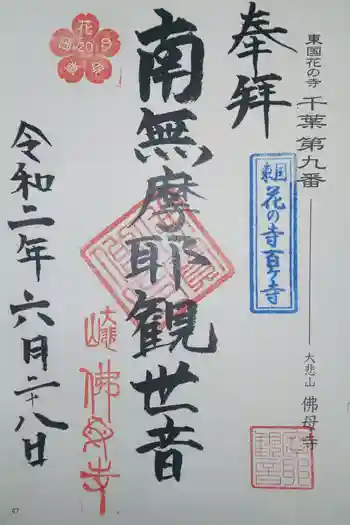 東国花の寺 千葉 第九番
大悲山 佛母寺
奉拝
東国
花の寺百ヶ寺
南無摩耶観世音
花
20
大悲山
佛母寺
令和二年六月二十八日